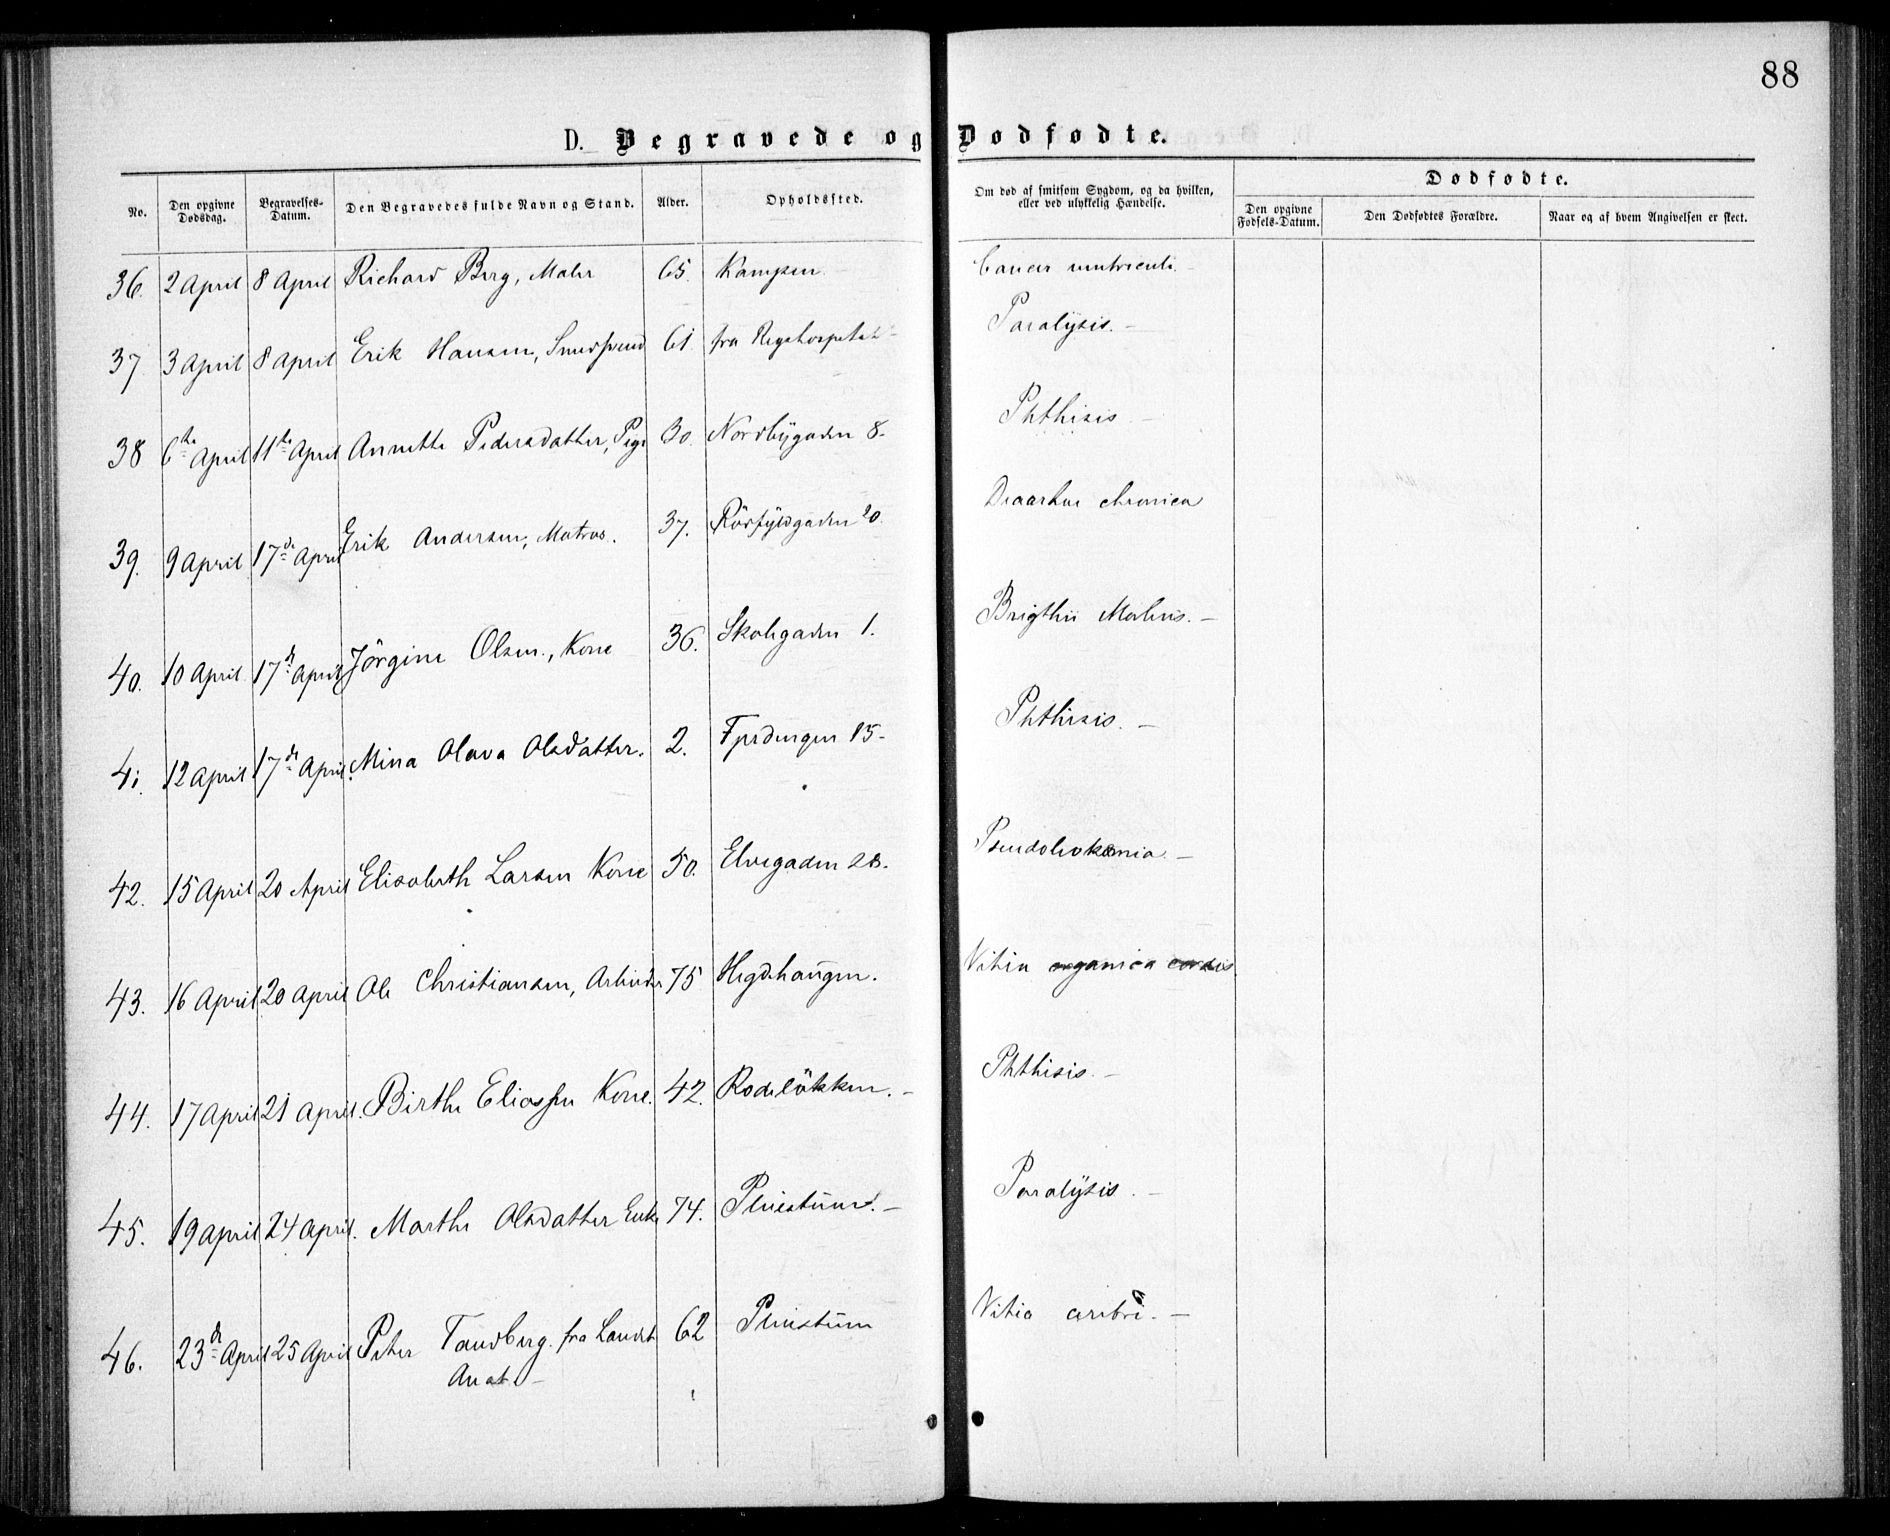 88
D. Begravede og Dødfødte.
No. Den opgivne Dødsdag. Begravelses-Datum. Den Begravedes fulde Navn og Stand. Alder. Opholdssted. Om død af smitsom Sygdom, og da hvilken, eller ved ulykkelig Hændelse. Dødfødte.
Den opgivne Fødsels-Datum. Den Dødfødtes Forældre. Naar og af hvem Angivelsen er skeet.
36. 2 April 8 April Richard Berg, Maler 65. Kampen. Cancer ventriculi. –
37 3 April 8 April Erik Hansen, Smedsvend 61. fra Rigshospitalet Paralysis. –
38 6te April 11te April Annette Pedersdatter, Pige 30. Nordbygaden 8. Phthisis –
39. 9 April 17de April Erik Andersen, Matros. 37. 20. chronica
40. 10 April 17de April Jørgine Olsen., Kone 36. Skolegaden 1. Brigthii Morbus. –
41. 12 April 17de April Mina Olava Olsdatter. 2. Fjerdingen 15- Phthisis. –
42. 15 April 20 April Elisabeth Larsen Kone 50. Elvegaden 28. Pseudoleukæmia. –
43. 16 April 20 April Ole Christiansen, Arbeider 75 Hegdehaugen. Vitia organica cordis.
44. 17 April 21 April. Birthe Eliassen Kone. 42. Rodeløkken. – Phthisis. –
45. 19 April 24 April. Marthe Olsdatter Enke 74. – Paralysis. –
46. 23de April 25 April Peter Tandberg. fra Landets 62 Vitia cerebri. –
Anst. –